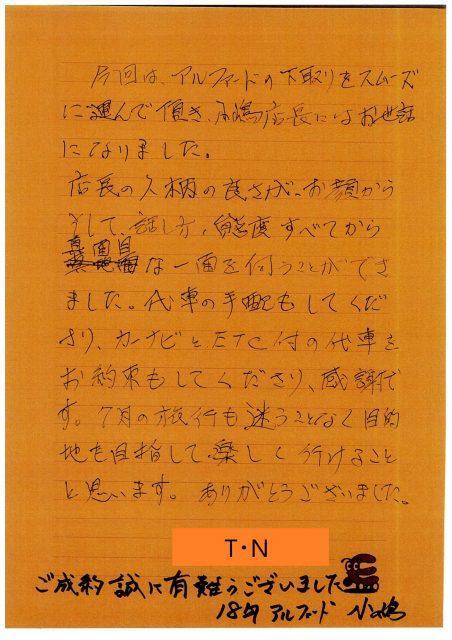 今回は、アルファードの下取りをスムーズ
に運んで頂き、小嶋店長にはお世話
になりました。
店長の人柄の良さが、お顔から
そして、話し方、態度すべてから
真面目な一面を伺うことができ
ました。代車の手配もしてくだ
さり、カーナビとETC付の代車を
お約束もしてくださり、感謝で
す。7月の旅行も迷うことなく目的
地を目指して楽しく行けること
と思います。ありがとうございました。
T・N
ご成約誠に有難うございました
18年 アルファード 小嶋